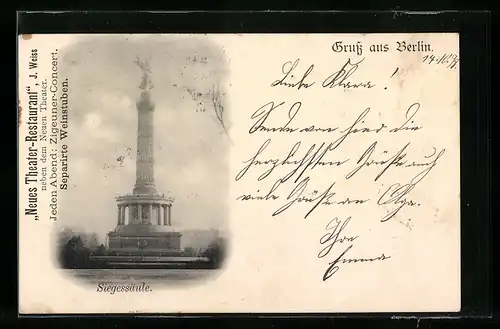 „Neues Theater-Restaurant“, J. Weiss
neben dem Neuen Theater.
Jeden Abend: Zigeuner-Concert.
Separirte Weinstuben.
Gruß aus Berlin.
Liebe Klara!
Sende von hier die
herzlichsten Grüße auch
viele Grüße an Olga.
Ihre
Emma
Siegessäule.